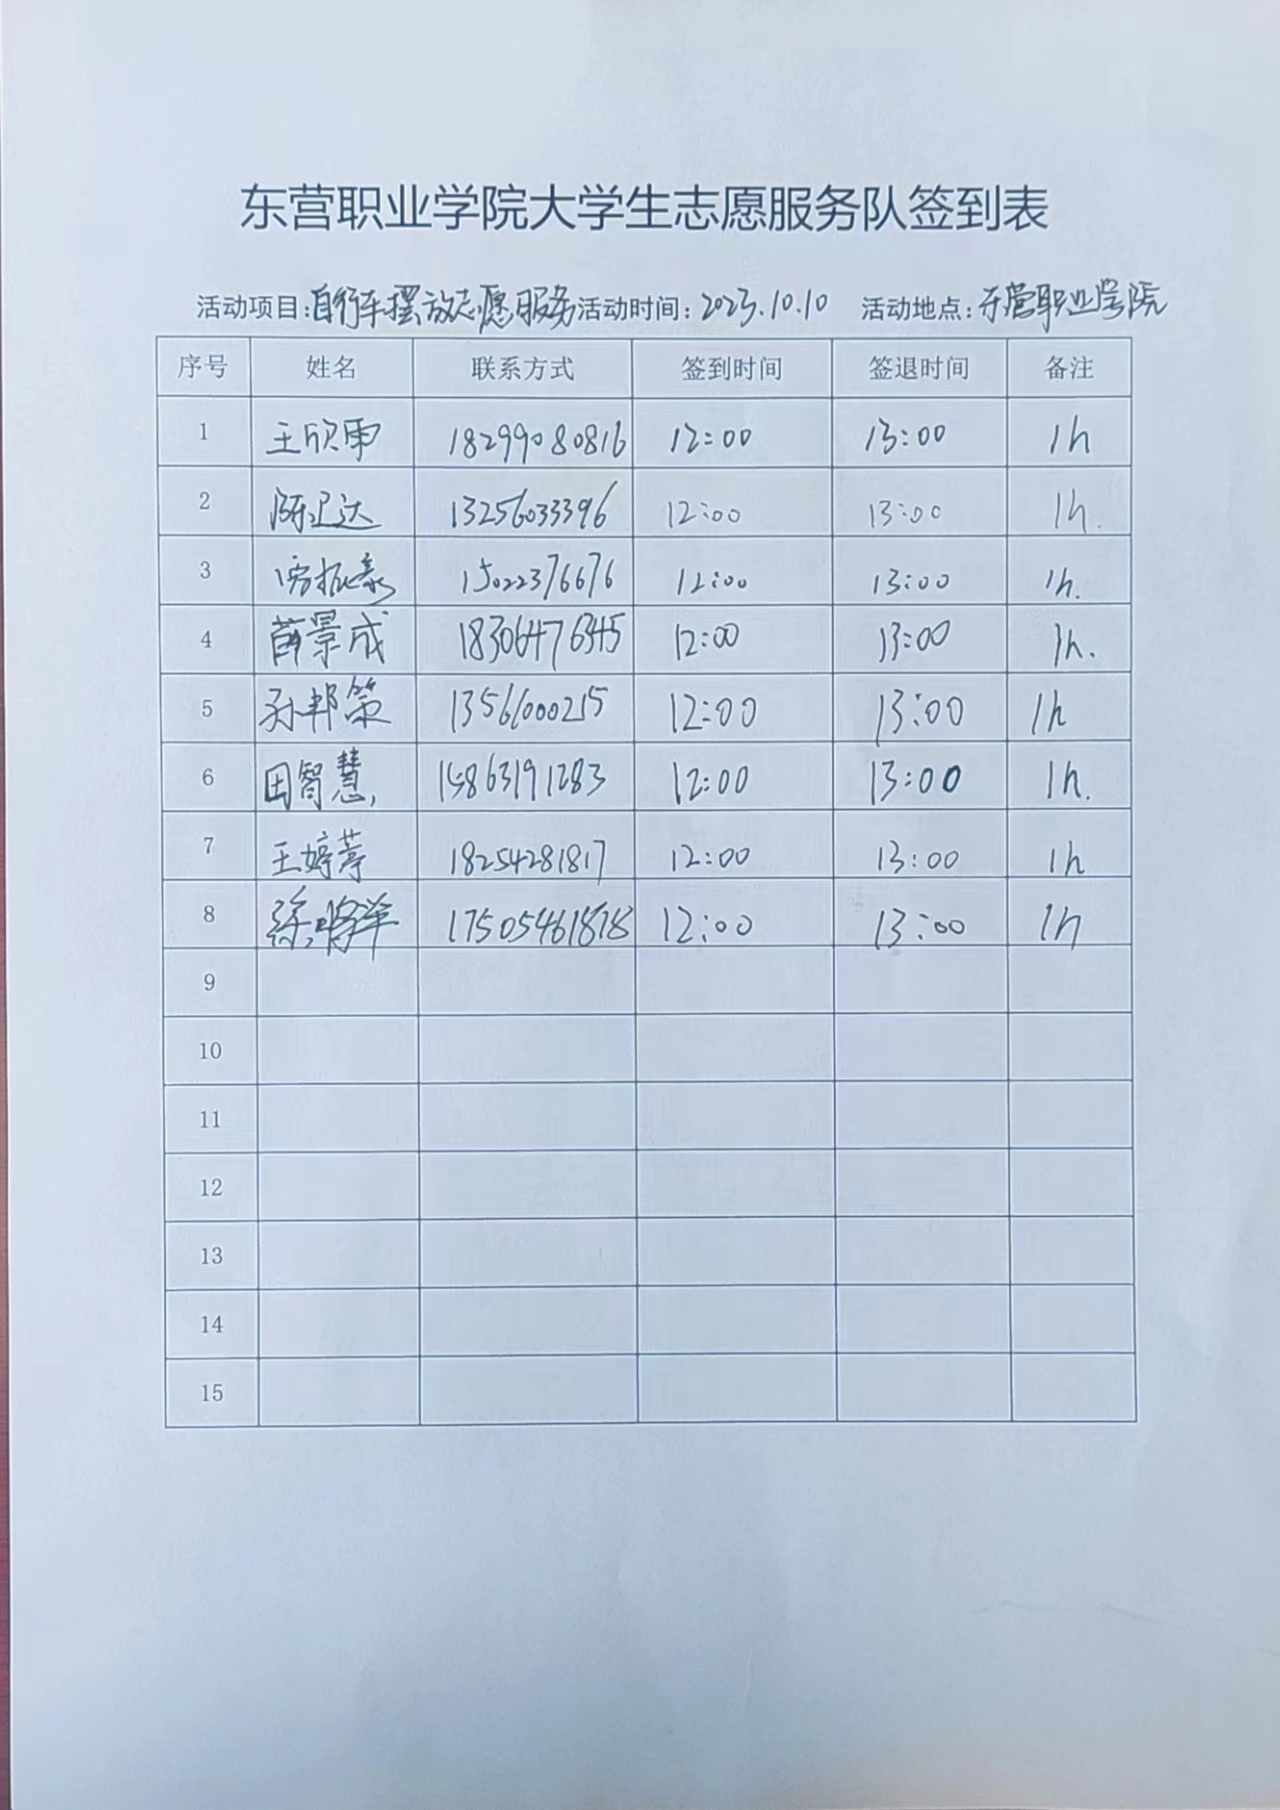 东营职业学院大学生志愿服务队签到表
活动项目:自行车摆放志愿服务 活动时间:2023.10.10 活动地点:东营职业学院
序号 姓名 联系方式 签到时间 签退时间 备注
1 王欣雨 18299080816 12:00 13:00 1h
2 陈 达 13256033396 12:00 13:00 1h.
3 15022376676 12:00 13:00 1h.
4 薛景成 18306476345 12:00 13:00 1h.
5 孙邦策 13561000215 12:00 13:00 1h
6 田智慧, 15863191283 12:00 13:00 1h.
7 王婷葶 18254281817 12:00 13:00 1h
8 徐 洋 17505461818 12:00 13:00 1h
9
10
11
12
13
14
15